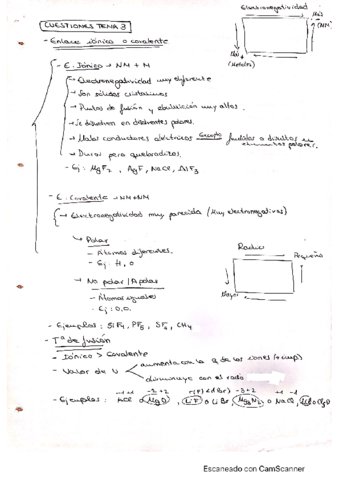 Electronegatividad
CUESTIONES TEMA 3
Más
(NM)
- Enlace iónico o covalente
Más
(Metales)
- E. Iónico → NM + M
- Electronegatividad muy diferente
- Son sólidos cristalinos
- Puntos de fusión y ebullición muy altos.
- Se disuelven en disolventes polares.
- Malos conductores eléctricos excepto fundidos o disueltos en
polares.
- Duros pero quebradizos.
- Ej: MgF₂, AgF, NaCl, AlF₃
- E. Covalente → NM + NM
- Electronegatividad muy parecida (Muy electronegativos)
Radio
Pequeño
Mayor
→ Polar
- Átomos diferentes.
- Ej: H, O
→ No polar / Apolar
- Átomos iguales
- Ej: O, O.
- Ejemplos: SiF₄, PF₅, SF₄, CH₄
- Tª de fusión
- Iónico > Covalente
- Valor de U
aumenta con la q de los iones (+ imp)
disminuye con el radio
- Ejemplos:
MgO, LiF o LiBr, Mg₃N₂ o NaCl,
Escaneado con CamScanner